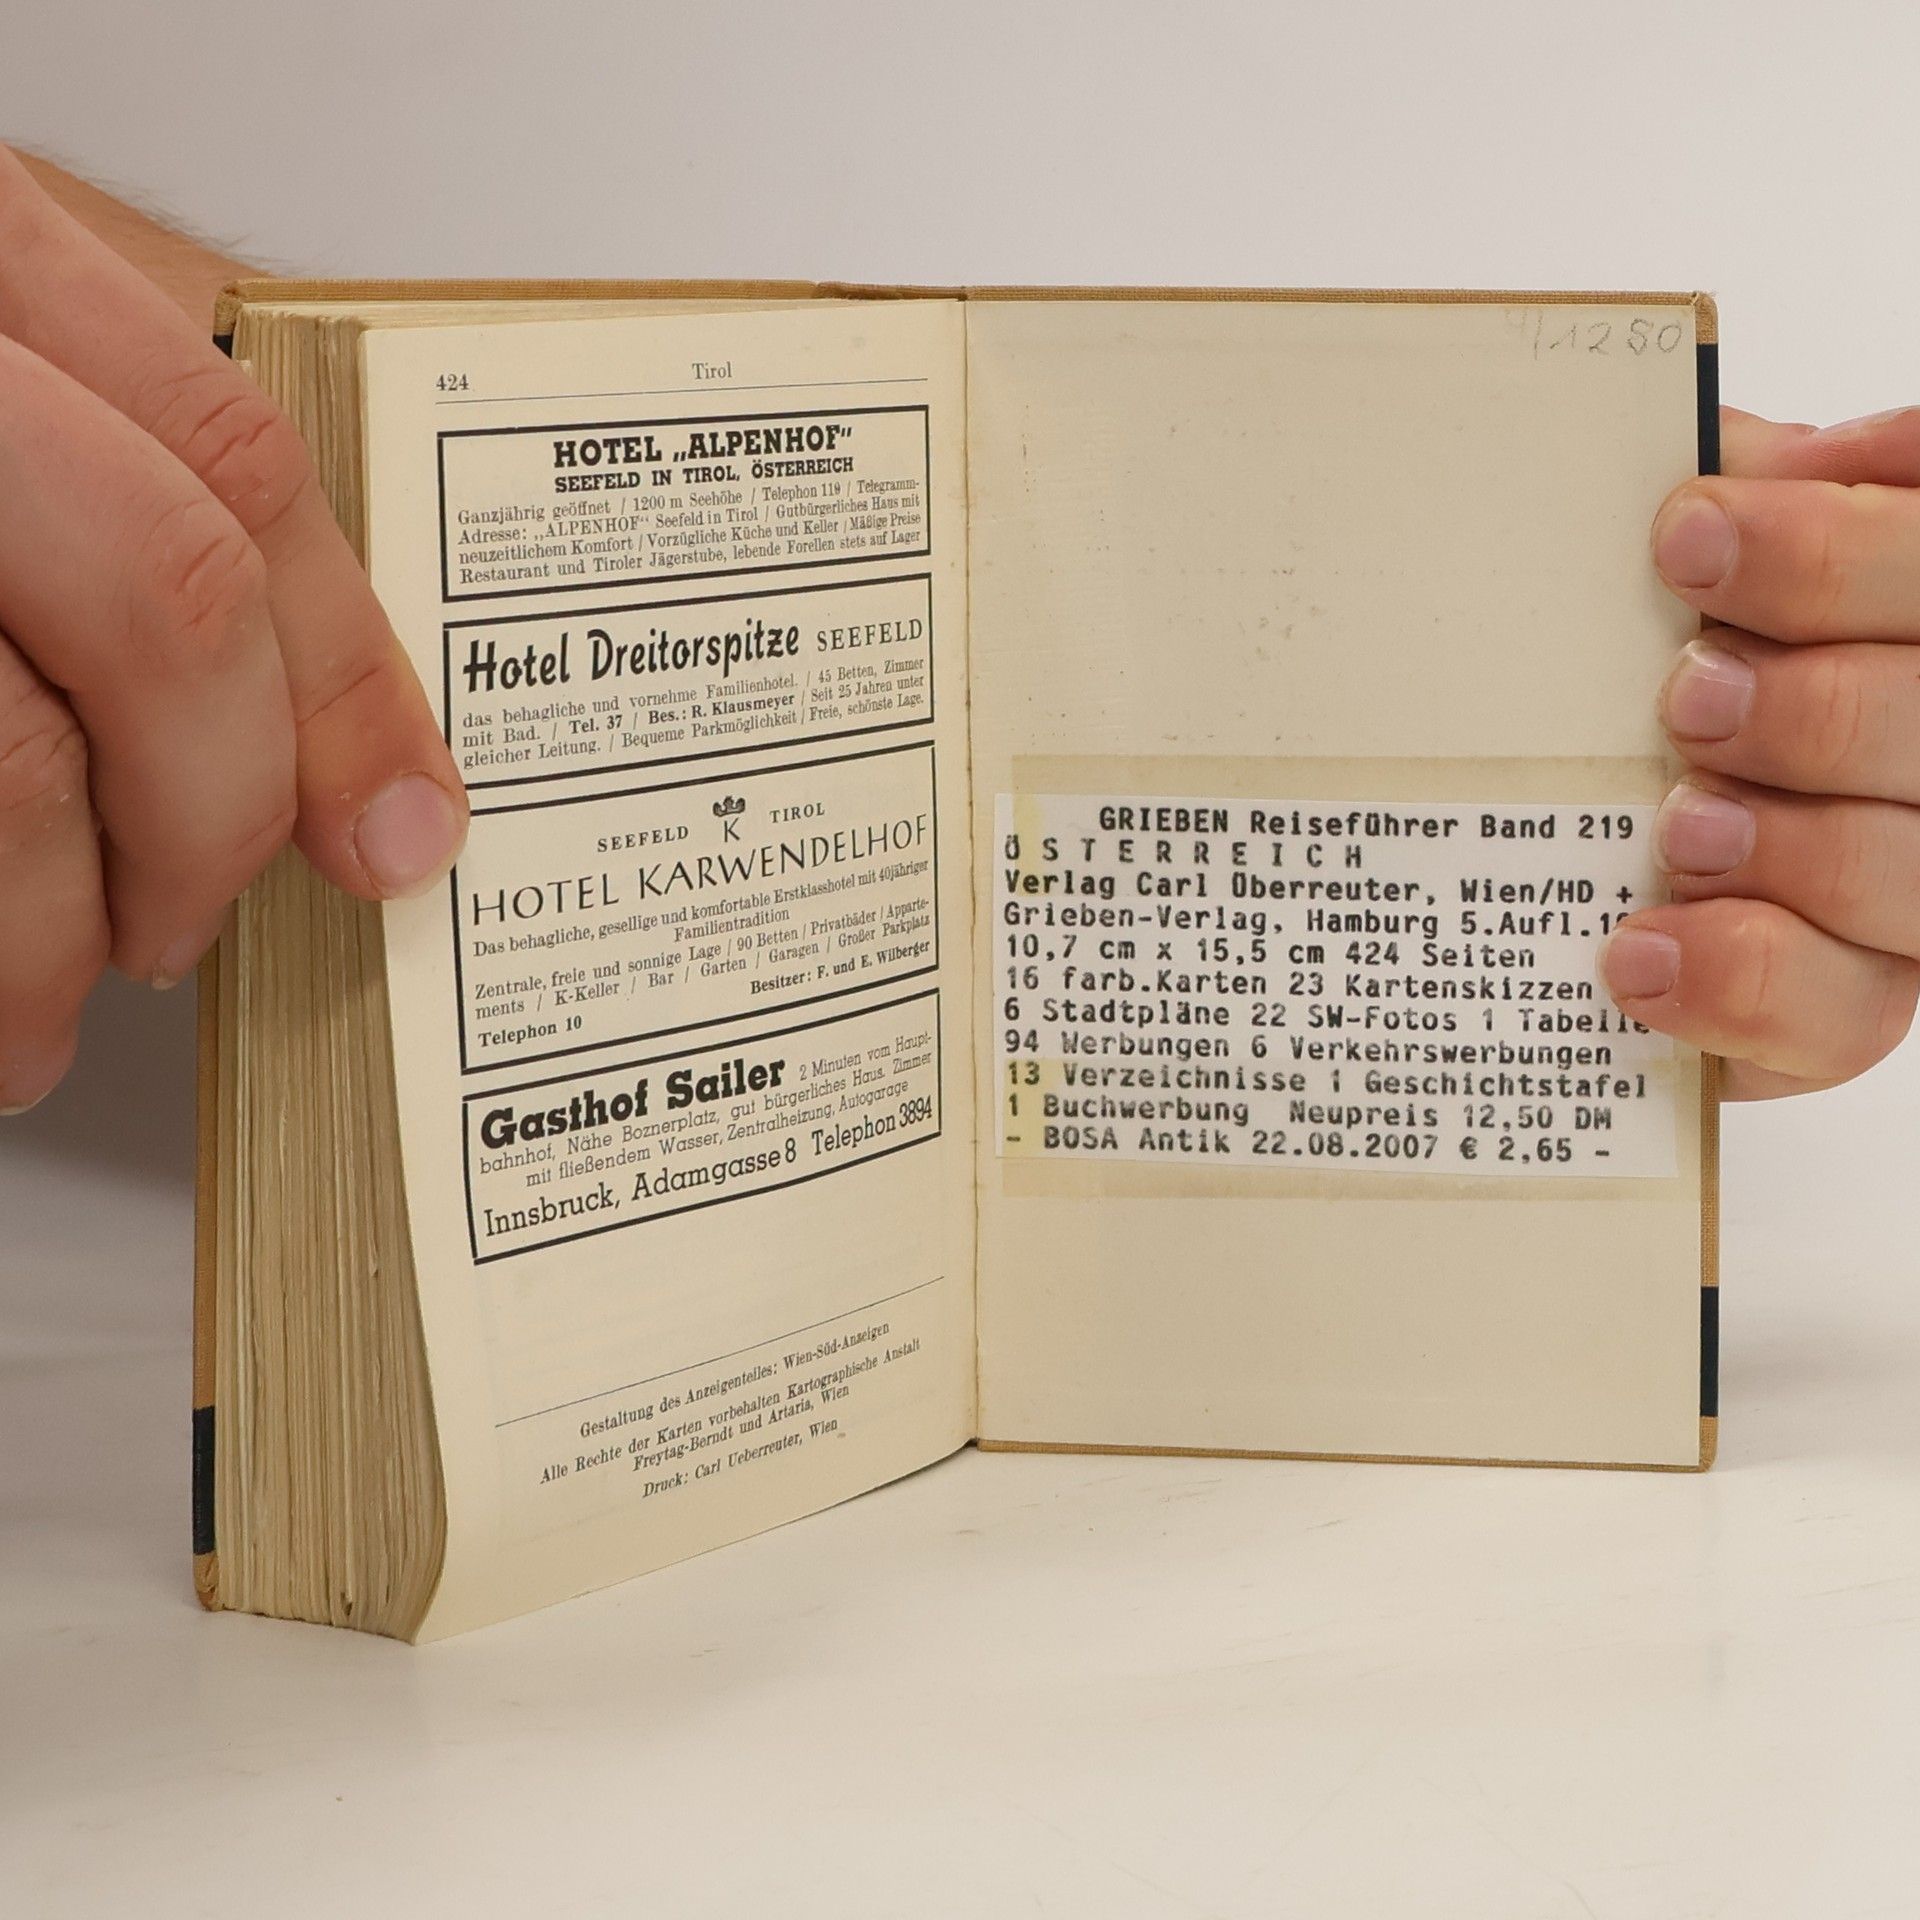 424
Tirol
HOTEL „ALPENHOF"
SEEFELD IN TIROL, ÖSTERREICH
Ganzjährig geöffnet / 1200 m Seehöhe / Telephon 119 / Telegramm-
Adresse: „ALPENHOF“ Seefeld in Tirol / Gutbürgerliches Haus mit
neuzeitlichem Komfort / Vorzügliche Küche und Keller / Mäßige Preise
Restaurant und Tiroler Jägerstube, lebende Forellen stets auf Lager
Hotel Dreitorspitze SEEFELD
das behagliche und vornehme Familienhotel. / 45 Betten, Zimmer
mit Bad. / Tel. 37 / Bes.: R. Klausmeyer / Seit 25 Jahren unter
gleicher Leitung. / Bequeme Parkmöglichkeit / Freie, schönste Lage.
SEEFELD K TIROL
HOTEL KARWENDELHOF
Das behagliche, gesellige und komfortable Erstklasshotel mit 40jähriger
Familientradition
Zentrale, freie und sonnige Lage / 90 Betten / Privatbäder / Apparte-
ments / K-Keller / Bar / Garten / Garagen / Großer Parkplatz
Besitzer: F. und E. Wilberger
Telephon 10
Gasthof Sailer 2 Minuten vom Haupt-
bahnhof, Nähe Boznerplatz, gut bürgerliches Haus. Zimmer
mit fließendem Wasser, Zentralheizung, Autogarage
Innsbruck, Adamgasse 8 Telephon 3894
Gestaltung des Anzeigenteiles: Wien-Süd-Anzeigen
Alle Rechte der Karten vorbehalten Kartographische Anstalt
Freytag-Berndt und Artaria, Wien
Druck: Carl Ueberreuter, Wien
1280
GRIEBEN Reiseführer Band 219
Ö S T E R R E I C H
Verlag Carl Überreuter, Wien/HD +
Grieben-Verlag, Hamburg 5.Aufl.
10,7 cm x 15,5 cm 424 Seiten
16 farb.Karten 23 Kartenskizzen
6 Stadtpläne 22 SW-Fotos 1 Tabelle
94 Werbungen 6 Verkehrswerbungen
13 Verzeichnisse 1 Geschichtstafel
1 Buchwerbung Neupreis 12,50 DM
- BOSA Antik 22.08.2007 € 2,65 -